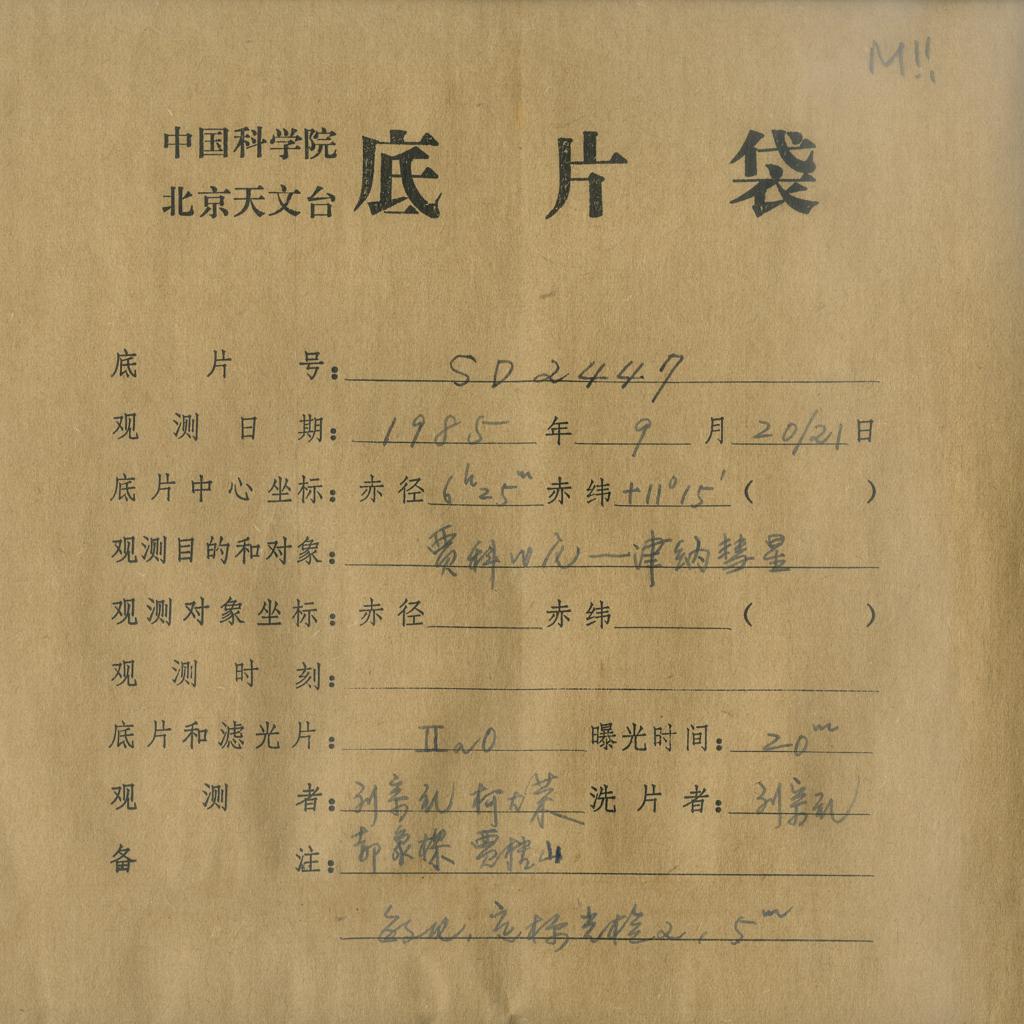 M!!
中国科学院
北京天文台 底片袋
底片号: SD2447
观测日期: 1985年9月20/21日
底片中心坐标: 赤径 6h25m 赤纬 +11°15′ ( )
观测目的和对象: 贾科比尼—津纳彗星
观测对象坐标: 赤径 赤纬 ( )
观测时刻:
底片和滤光片: IIaO 曝光时间: 20m
观测者: 刘宗礼 柯 洗片者: 刘宗礼
备注: 郭 贾 山
敏化, 定标光 2, 5m